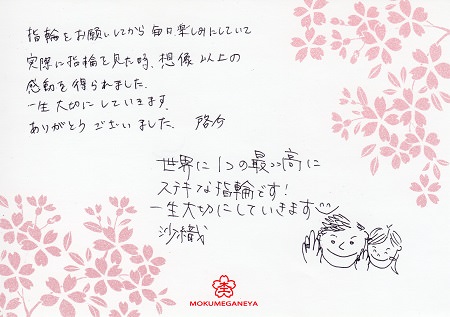 指輪をお願いしてから毎日楽しみにしていて
実際に指輪を見た時、想像以上の
感動を得られました。
一生大切にしていきます。
ありがとうございました。 啓介
世界に1つの最高に
ステキな指輪です!
一生大切にしていきます
沙織
MOKUMEGANEYA